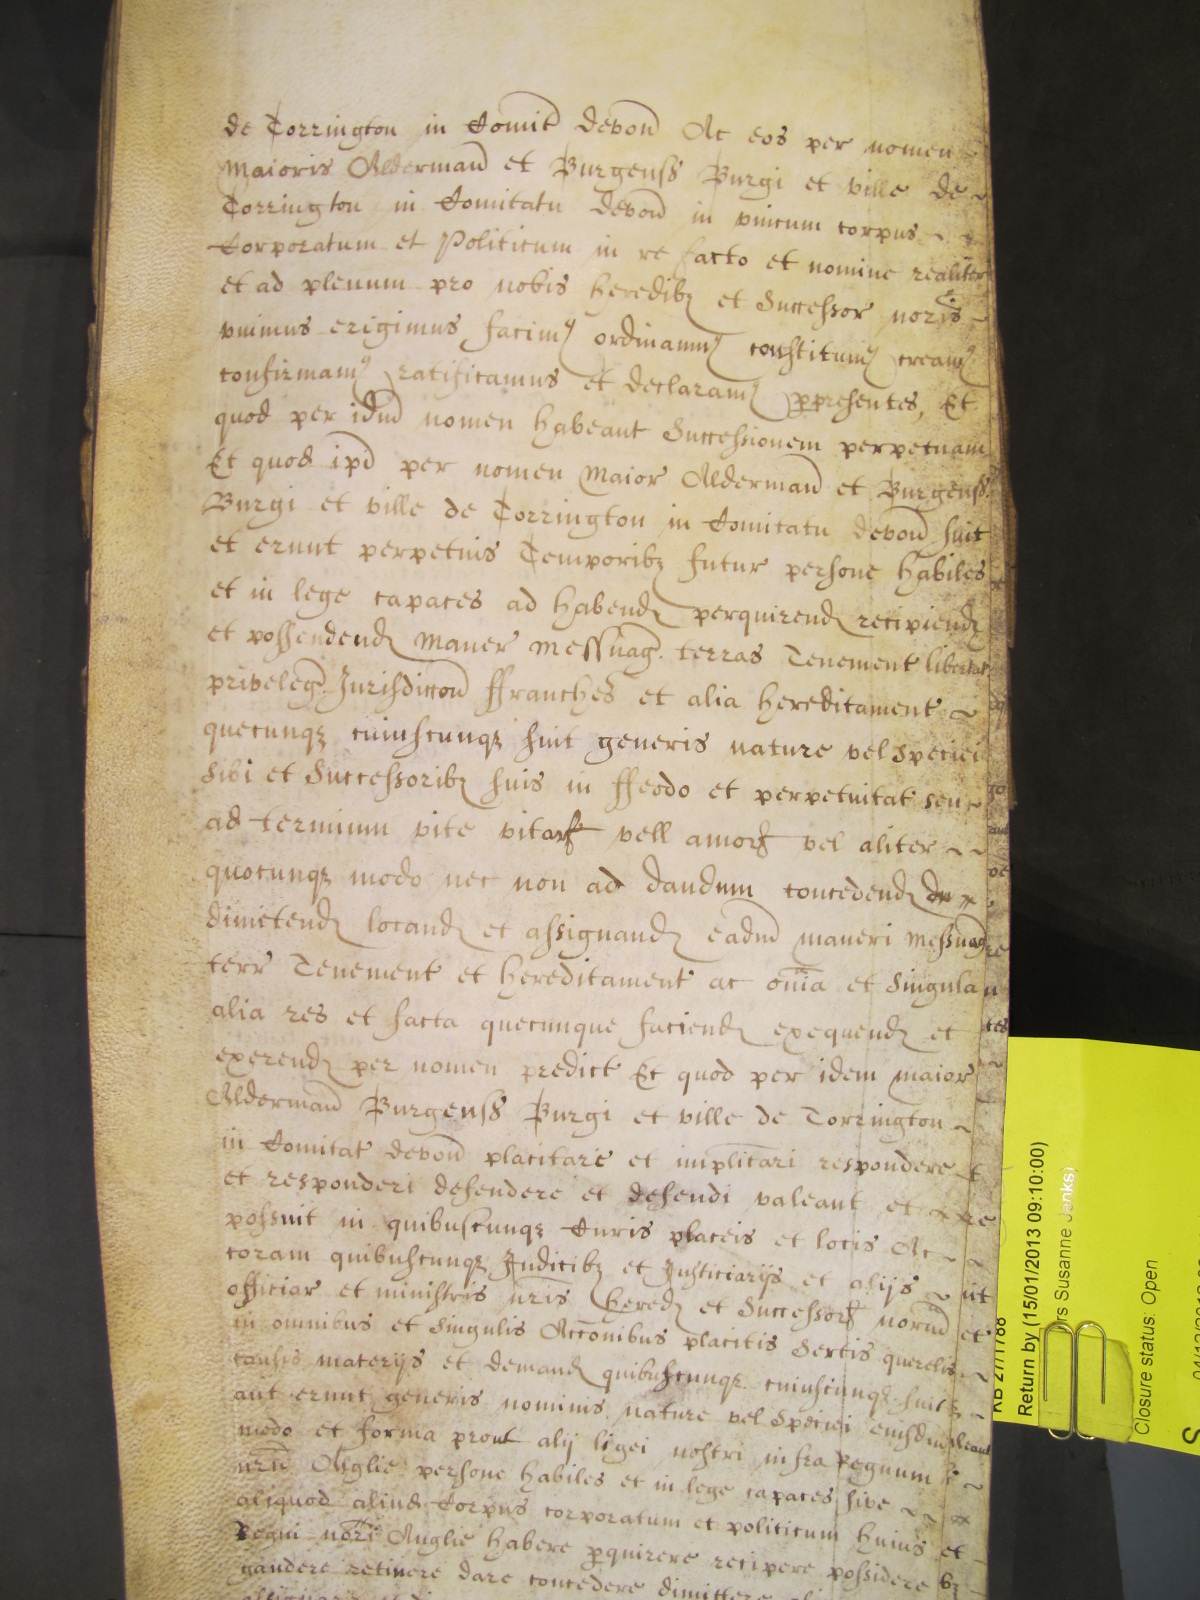 de Torrington in Comit Devon Ac eos per nomen
Maioris Alderman et Burgenss Burgi et ville de
Torrington in Comitatu Devon in vnicum corpus
Corporatum et Politicum in re facto et nomine realiter
et ad plenum pro nobis heredibz et Successor noris
vnimus erigimus facim9 ordinamus constituim9 cream9
confirmam9 ratificamus et declaram9 p presentes, Et
quod per idm nomen habeant Successionem perpetuam
Et quod ipd per nomen Maior Alderman et Burgenss
Burgi et ville de Torrington in Comitatu Devon sint
et erunt perpetuis Temporibz futur persone habiles
et in lege capaces ad habend perquirend recipiend
et possendend Maner Messuag terras Tenement libertat
priveleg Jurisdiccon ffranches et alia hereditament
quecunqz cuiuscunqz sint generis nature vel speciei
sibi et Successoribz suis in ffeodo et perpetuitat seu
ad terminum vite vitar vell annor vel aliter
quocunqz modo nec non ad dandum concedend
dimittend locand et assignand eadm maneri Messuag
terr Tenement et hereditament ac omia et Singula
alia res et facta quecunque faciend exequend et
exerend per nomen predict Et quod per idem maior
Alderman Burgenss Burgi et ville de Torrington
in Comitat Devon placitare et implicari respondere
et responderi defendere et defendi valeant et
possint in quibuscunqz Curis placeis et locis Ac
coram quibuscunqz Judicibz et Justiciarijs et alijs
officiar et ministris nris hered et Successor norm
in omnibus et Singulis Acconibus placitis Sectis querelis
causis materijs et demand quibuscunqz cuiuscunqz sint
aut erunt generis nominis nature vel Speciei eiusdm
modo et forma prout alij ligei nostri infra Regnum
nrm Anglie persone habiles et in lege capaces sive
aliquod aliud Corpus corporatum et politicum huius
Regni nori Anglie habere pquirere recipere possidere
gaudere retinere dare concedere dimittere
KB 27/1788
Return by (15/01/2013 09:10:00)
Susanne Jenks)
Closure status: Open